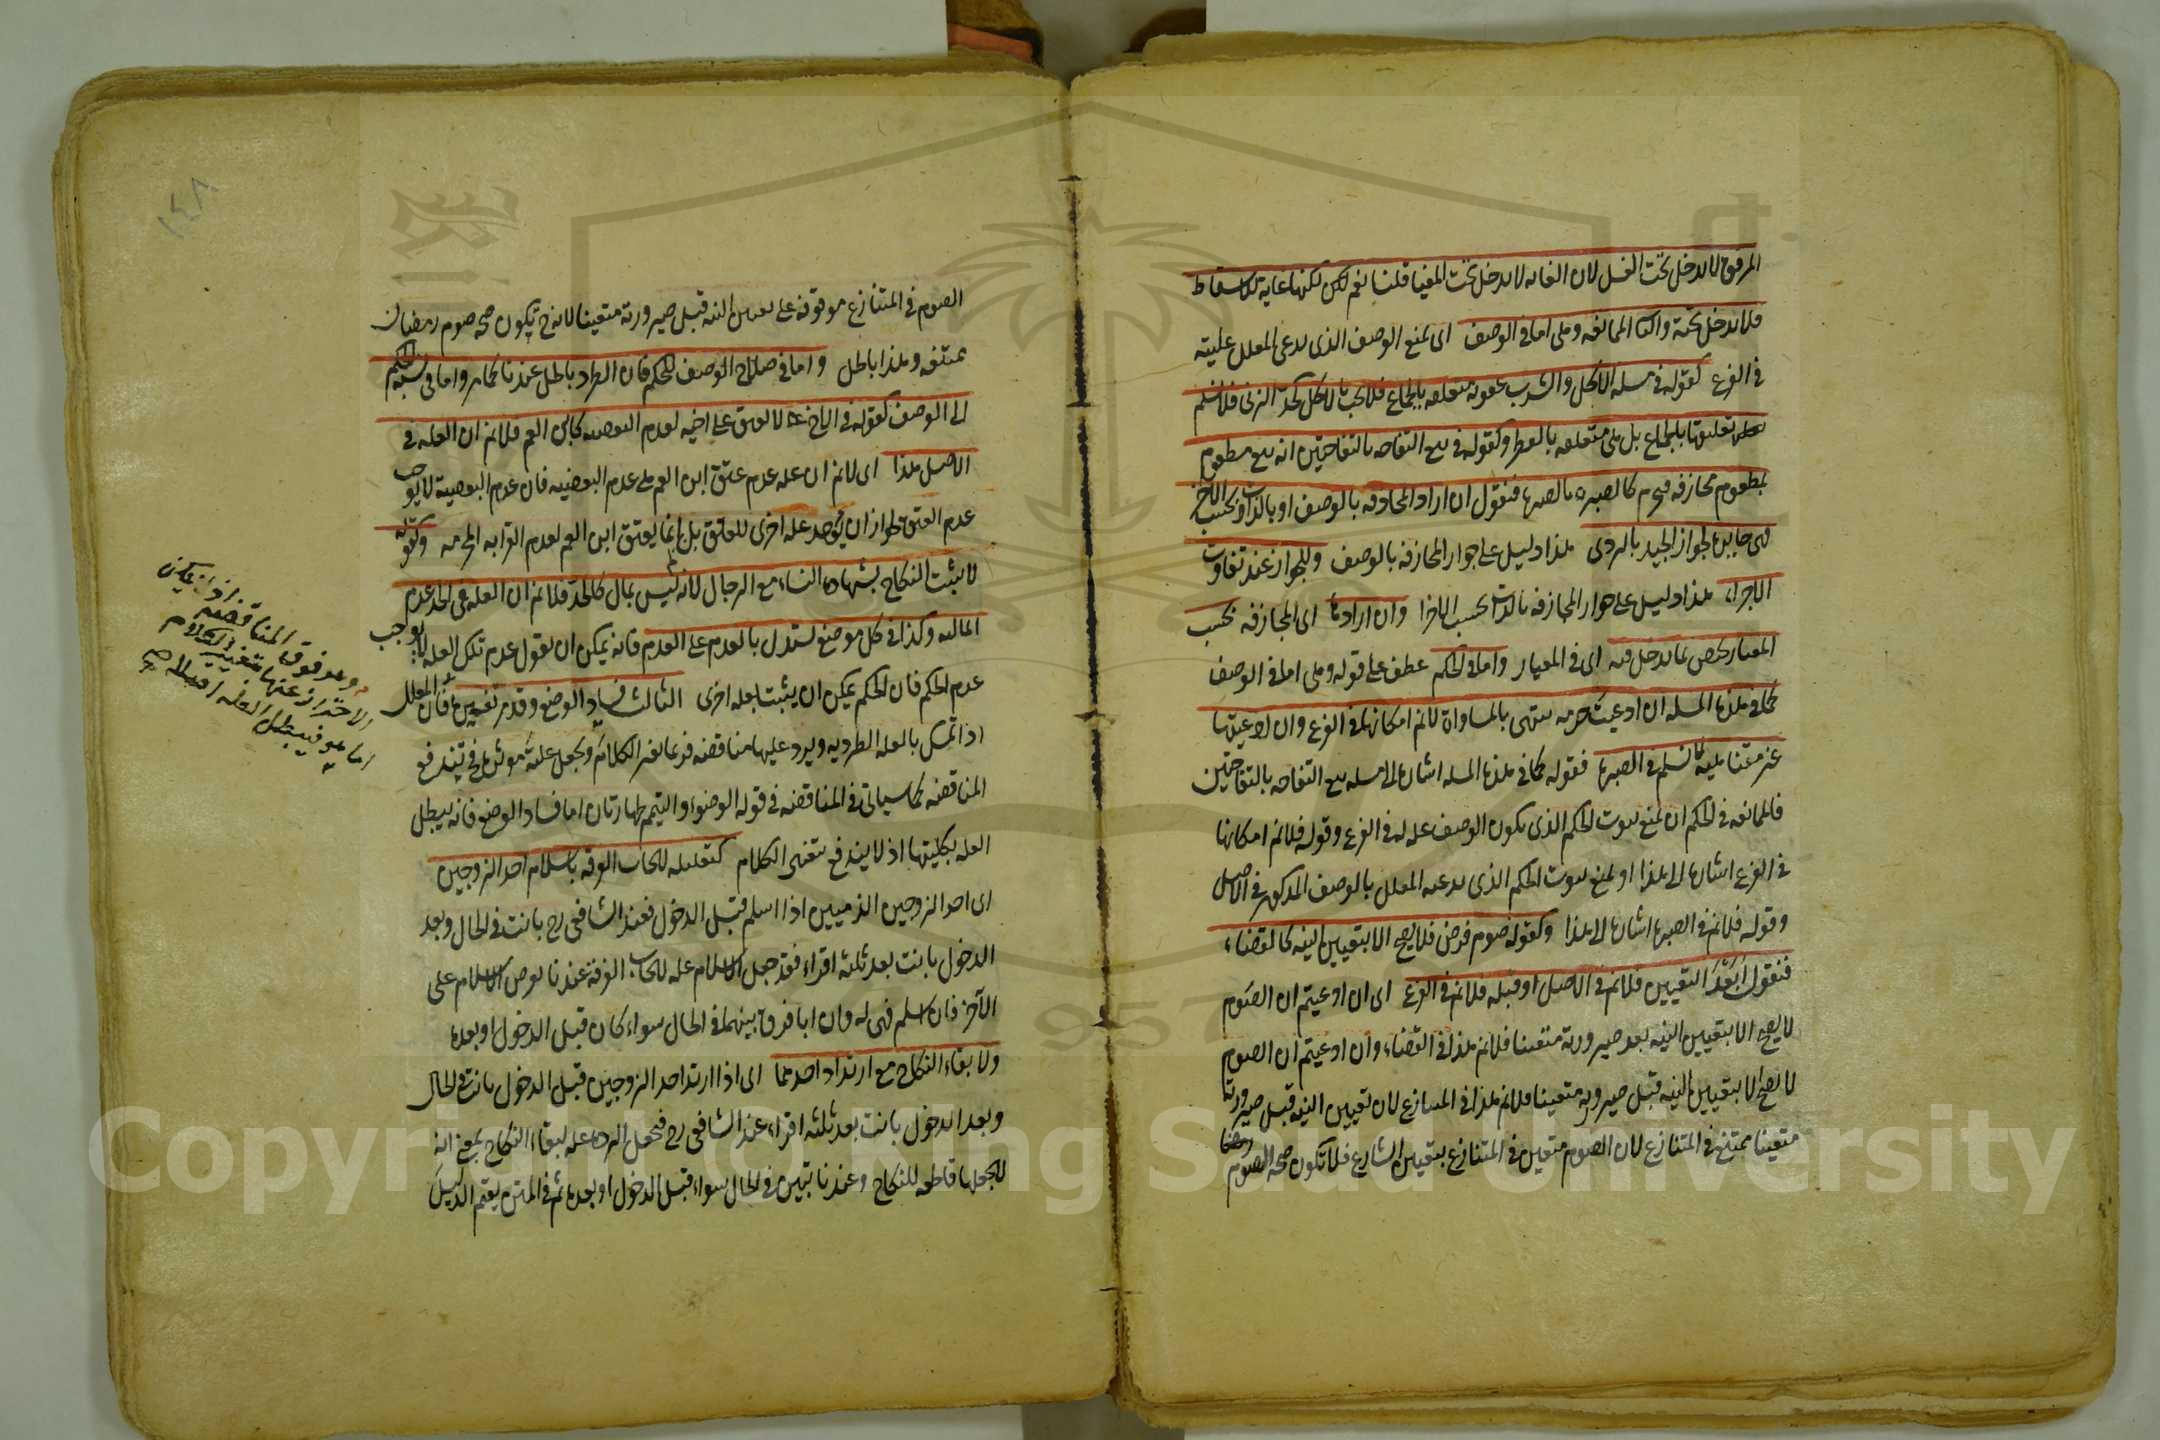 المرفق لا يدخل تحت الغسل لان الغاية لا يدخل تحت المغيا قلنا نعم لكن لكنها غاية للاسقاط
فلا يدخل تحته والثانى الممانعه وهى اما فى الوصف اى يمنع الوصف الذى يدعى المعلل عليته
فى الفرع كقوله فى مسله الاكل والشرب عقوبة متعلقه بالجماع فلا يجب بالاكل كحد الزنى فلا نسلم
تعلقها بالجماع بل هى متعلقه بالفطر وكقوله فى بيع التفاحه بالتفاحتين انه بيع مطعوم
بمطعوم مجازفه فيحرم كالصبره بالصبره فنقول ان اراد المجازفه بالوصف او بالذات بحسب الاجزا
فهى جايزه لجواز الجيد بالردى هذا دليل على جواز المجازفه بالوصف وللجواز عند تفاوت
الاجزاء هذا دليل على جواز المجازفه بالذات بحسب الاجزا وان ارادها اى المجازفه بحسب
المعيار يختص بما يدخل فيه اى فى المعيار واما فى الحكم عطف على قوله وهى اما فى الوصف
كما فى هذه المسله ان ادعيت حرمه تنتهى بالمساواة لا نم امكانها فى الفرع وان ادعيتها
غير متناهيه لا نسلم فى الصبره فقوله كما فى هذه المسله اشارة الى مسله بيع التفاحه بالتفاحتين
فالممانعه فى الحكم ان يمنع ثبوت الحكم الذى يكون الوصف عله له فى الفرع وقوله فلا نم امكانها
فى الفرع اشارة الى هذا او يمنع ثبوت الحكم الذى يدعيه المعلل بالوصف المذكور فى الاصل
وقوله فلا نم فى الصبره اشارة الى هذا وكقوله صوم فرض فلا يصح الا بتعيين النيه كالقضاء
فنقول ابعد التعيين فلا نم فى الاصل او قبله فلا نم فى الفرع اى ان ادعيتم ان الصوم
لا يصح الا بتعيين النيه بعد صيرورته متعينا فلا نم هذا فى القضاء وان ادعيتم ان الصوم
لا يصح الا بتعيين النيه قبل صيرورته متعينا فلا نم هذا فى المتنازع لان تعيين النيه قبل صيرورته
متعينا ممتنع فى المتنازع لان الصوم متعين فى المتنازع بتعيين الشارع فلا تكون صحه الصوم
١٤٨
الصوم فى المتنازع موقوفه على تعيين النيه قبل صيرورته متعينا لانه ح تكون صحه صوم رمضان
ممتنعه وهذا باطل واما فى صلاح الوصف للحكم فان الطرد باطل عندنا كما مر واما فى نسبه الحكم
الى الوصف كقوله فى الاخ لا يعتق على اخيه لعدم البعضيه كابن العم فلا نم ان العله فى
الاصل هذا اى لا نم ان عله عدم عتق ابن العم هى عدم البعضيه فان عدم البعضية لا يوجب
عدم العتق لجواز ان يوجد عله اخرى للعتق بل انما يعتق ابن العم لعدم القرابه المحرمه وكقوله
لا يثبت النكاح بشهادة النساء مع الرجال لانه ليس بمال كالحد فلا نم ان العله فى الحد عدم
الماليه وكذا فى كل موضع يستدل بالعدم على العدم فانه يمكن ان يقول عدم تلك العله لا يوجب
عدم الحكم فان الحكم يمكن ان يثبت بعله اخرى الثالث فساد الوضع وقد مر تفسيره فان المعلل
اذا تمسك بالعله الطرديه ويرد عليها مناقضه فربما يغير الكلام ويجعل علته مؤثرة فح تندفع
المناقضه كما سياتى فى المناقضه فى قوله الوضوء والتيمم طهارتان اما فساد الوضع فانه يبطل
العله بكليتها اذ لا يندفع بتغير الكلام كتعليله لايجاب الفرقه باسلام احد الزوجين
اى احد الزوجين الذميين اذا اسلم قبل الدخول فعند الشافعى رح بانت فى الحال وبعد
الدخول بانت بعد ثلثه اقراء فقد جعل الاسلام عله لايجاب الفرقة وعندنا يعرض الاسلام على
الآخر فان اسلم فهى له وان ابا فرق بينهما فى الحال سواء كان قبل الدخول او بعده
ولا بقاء النكاح مع ارتداد احدهما اى اذا ارتد احد الزوجين قبل الدخول بانت فى الحال
وبعد الدخول بانت بعد ثلثه اقراء عند الشافعى رح فجعل الرده عله لبقاء النكاح بمعنى انه
لا يجعلها قاطعه للنكاح وعندنا تبين فى الحال سواء قبل الدخول او بعده ثم فى المتن يقيم الدليل
وهو فوق المناقضه اذ يمكن
الاحتراز عنها بتغيير الكلام
اما هو فيبطل العله اصلا صح
Copyright to King Saud University
957